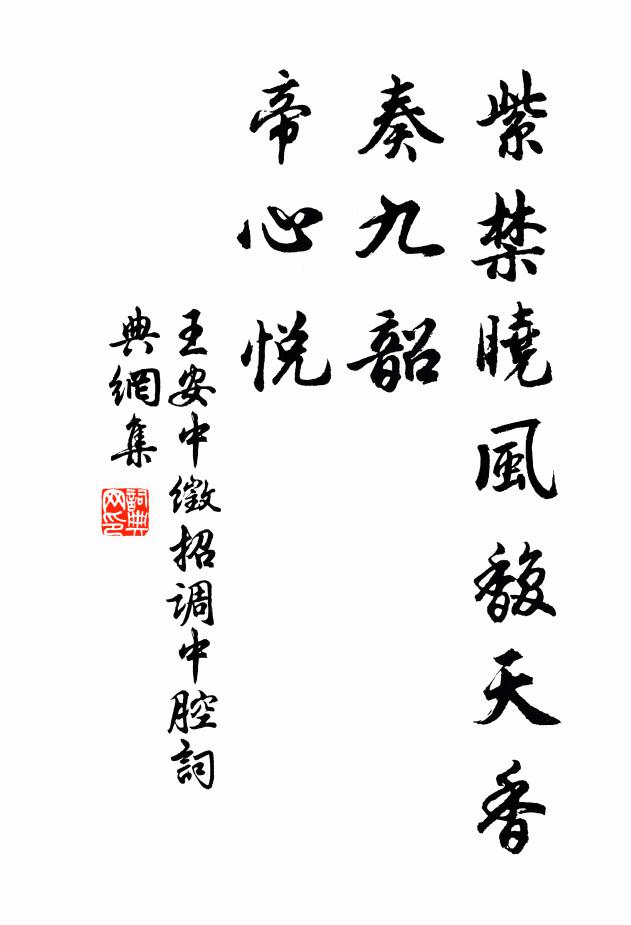 紫禁曉風馥天香
奏九韶
帝心悅
王安中徵招调中腔詞
典網集
詞典网印